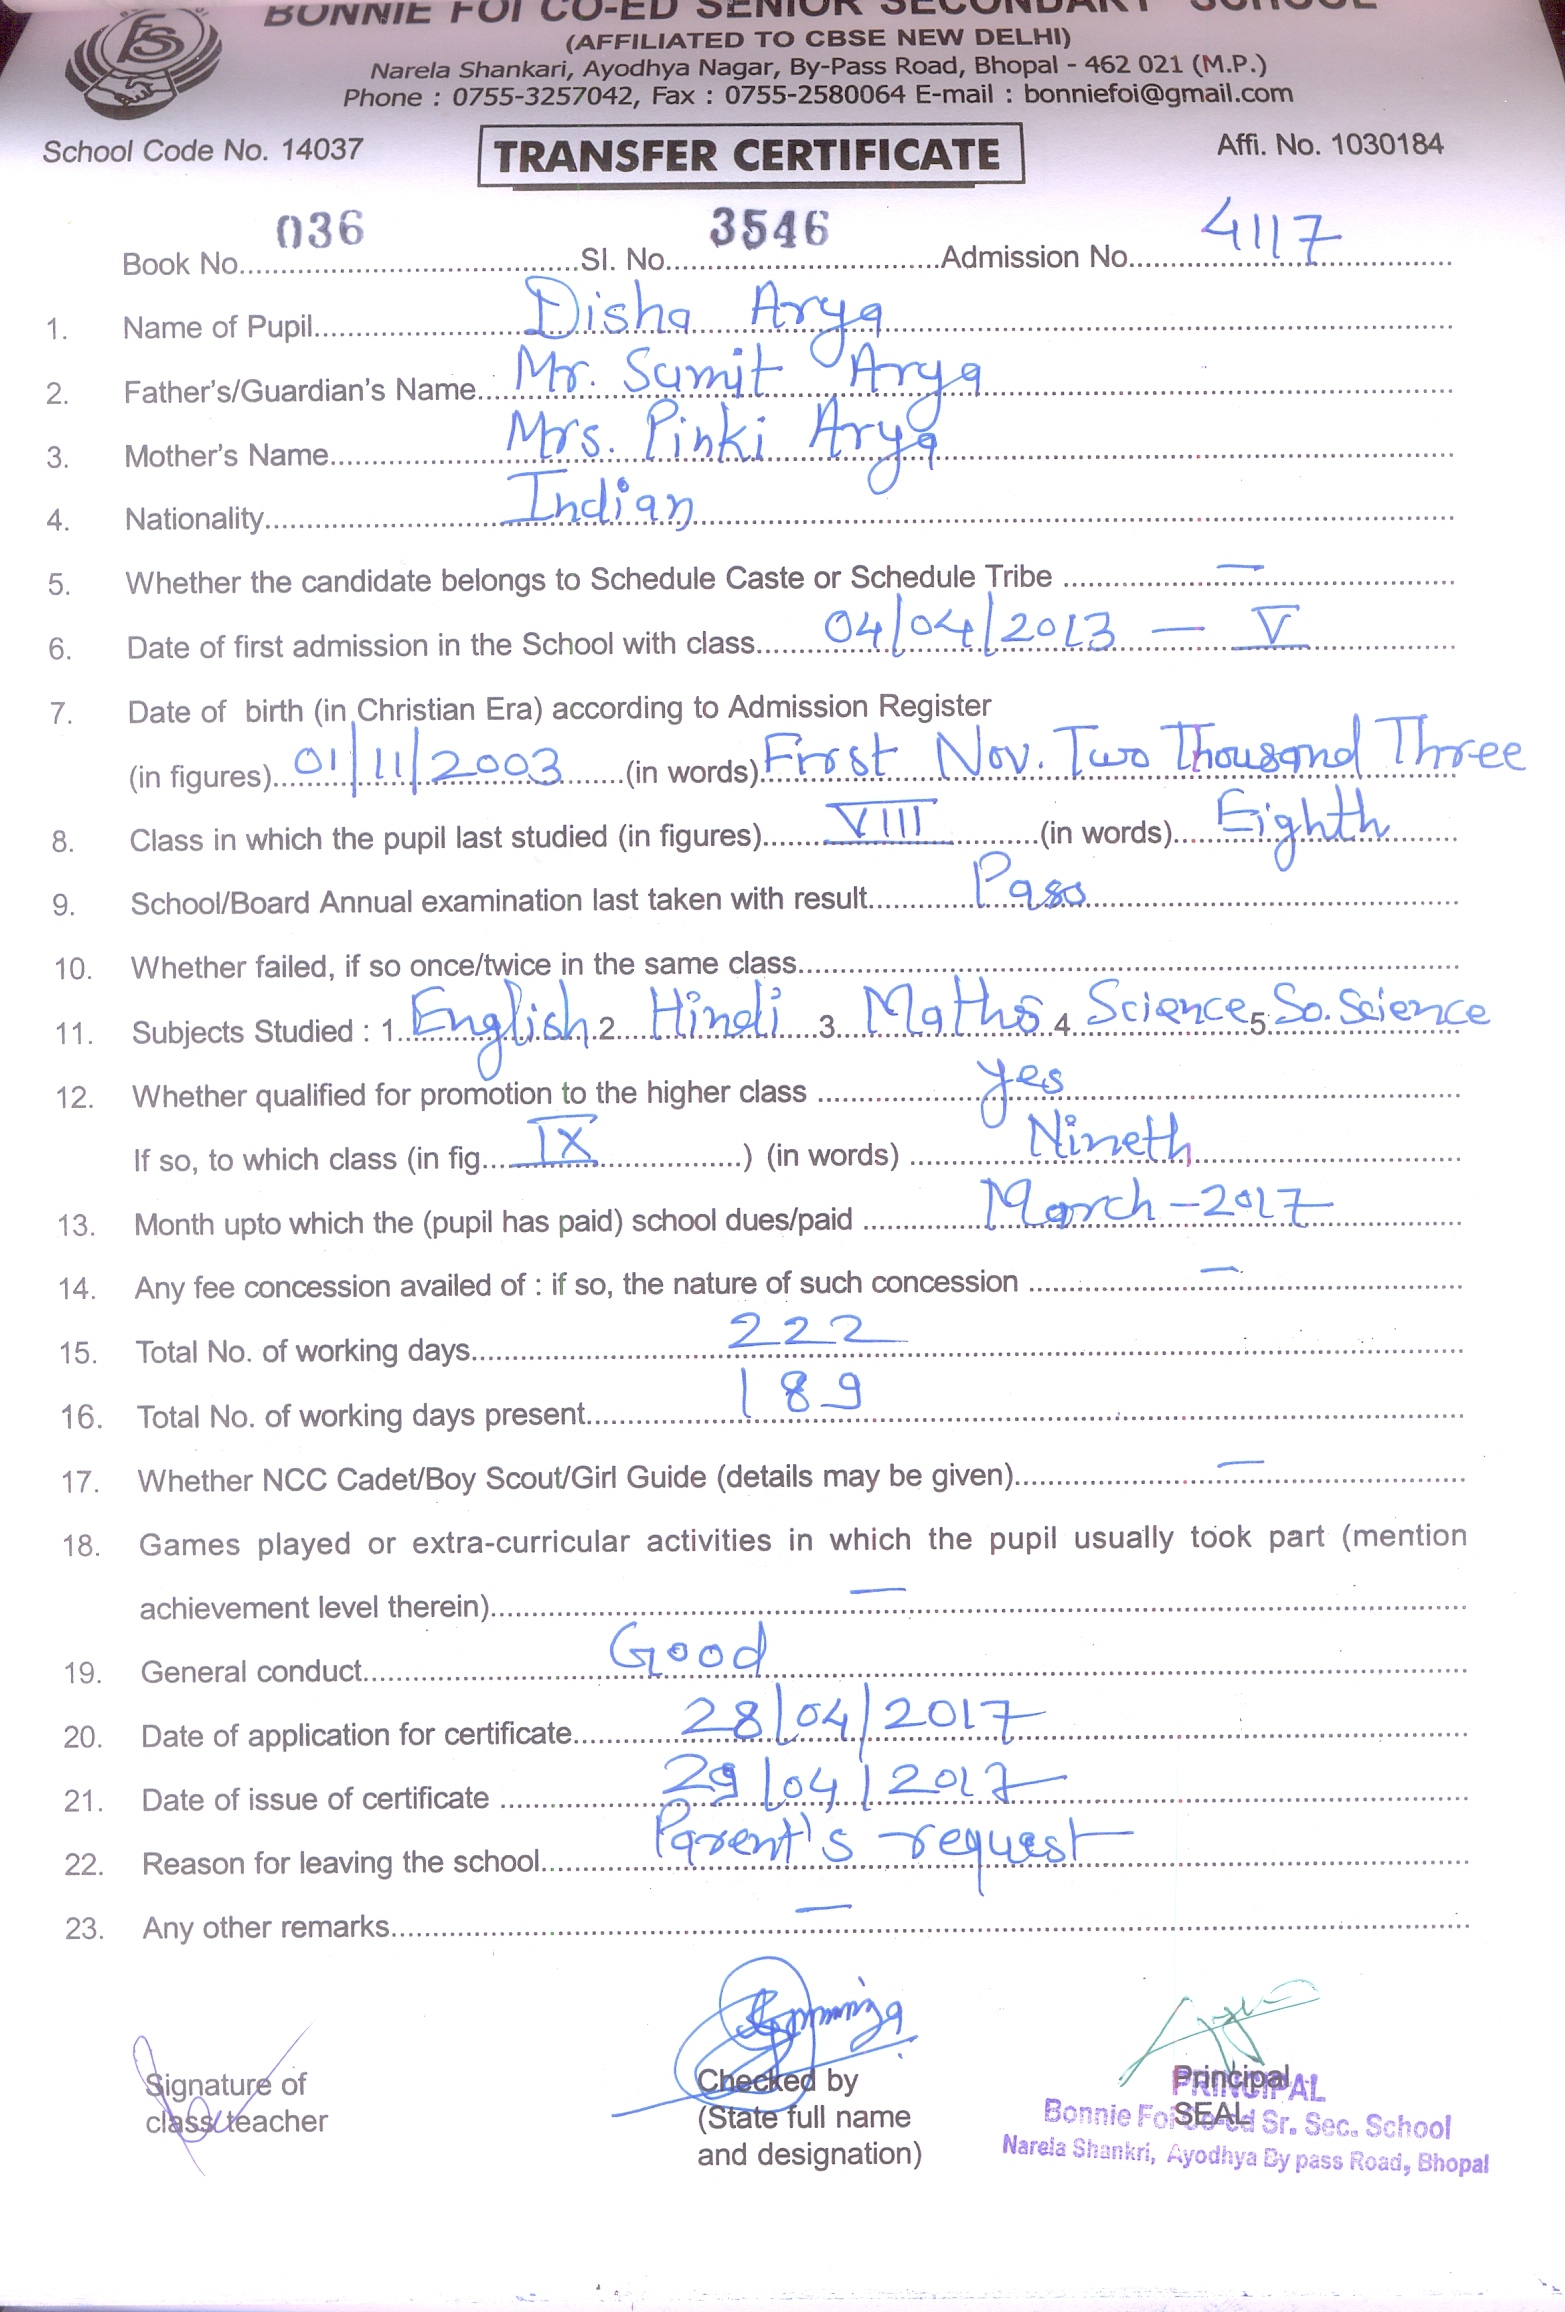 BONNIE FOI CO-ED SENIOR SECONDARY SCHOOL
(AFFILIATED TO CBSE NEW DELHI)
Narela Shankari, Ayodhya Nagar, By-Pass Road, Bhopal - 462 021 (M.P.)
Phone : 0755-3257042, Fax : 0755-2580064 E-mail : bonniefoi@gmail.com
School Code No. 14037 TRANSFER CERTIFICATE Affi. No. 1030184
Book No. 036 Sl. No. 3546 Admission No. 4117
1. Name of Pupil Disha Arya
2. Father's/Guardian's Name Mr. Sumit Arya
3. Mother's Name Mrs. Pinki Arya
4. Nationality Indian
5. Whether the candidate belongs to Schedule Caste or Schedule Tribe —
6. Date of first admission in the School with class 04/04/2013 — V
7. Date of birth (in Christian Era) according to Admission Register
(in figures) 01/11/2003 (in words) First Nov. Two Thousand Three
8. Class in which the pupil last studied (in figures) VIII (in words) Eighth
9. School/Board Annual examination last taken with result Pass
10. Whether failed, if so once/twice in the same class
11. Subjects Studied : 1. English 2. Hindi 3. Maths 4. Science 5. So. Science
12. Whether qualified for promotion to the higher class yes
If so, to which class (in fig. IX ) (in words) Nineth
13. Month upto which the (pupil has paid) school dues/paid March-2017
14. Any fee concession availed of : if so, the nature of such concession —
15. Total No. of working days 222
16. Total No. of working days present 189
17. Whether NCC Cadet/Boy Scout/Girl Guide (details may be given) —
18. Games played or extra-curricular activities in which the pupil usually took part (mention
achievement level therein) —
19. General conduct Good
20. Date of application for certificate 28/04/2017
21. Date of issue of certificate 29/04/2017
22. Reason for leaving the school Parent's request
23. Any other remarks —
Signature of
class teacher
Checked by
(State full name
and designation)
Principal
SEAL
PRINCIPAL
Bonnie Foi Co-ed Sr. Sec. School
Narela Shankri, Ayodhya By pass Road, Bhopal